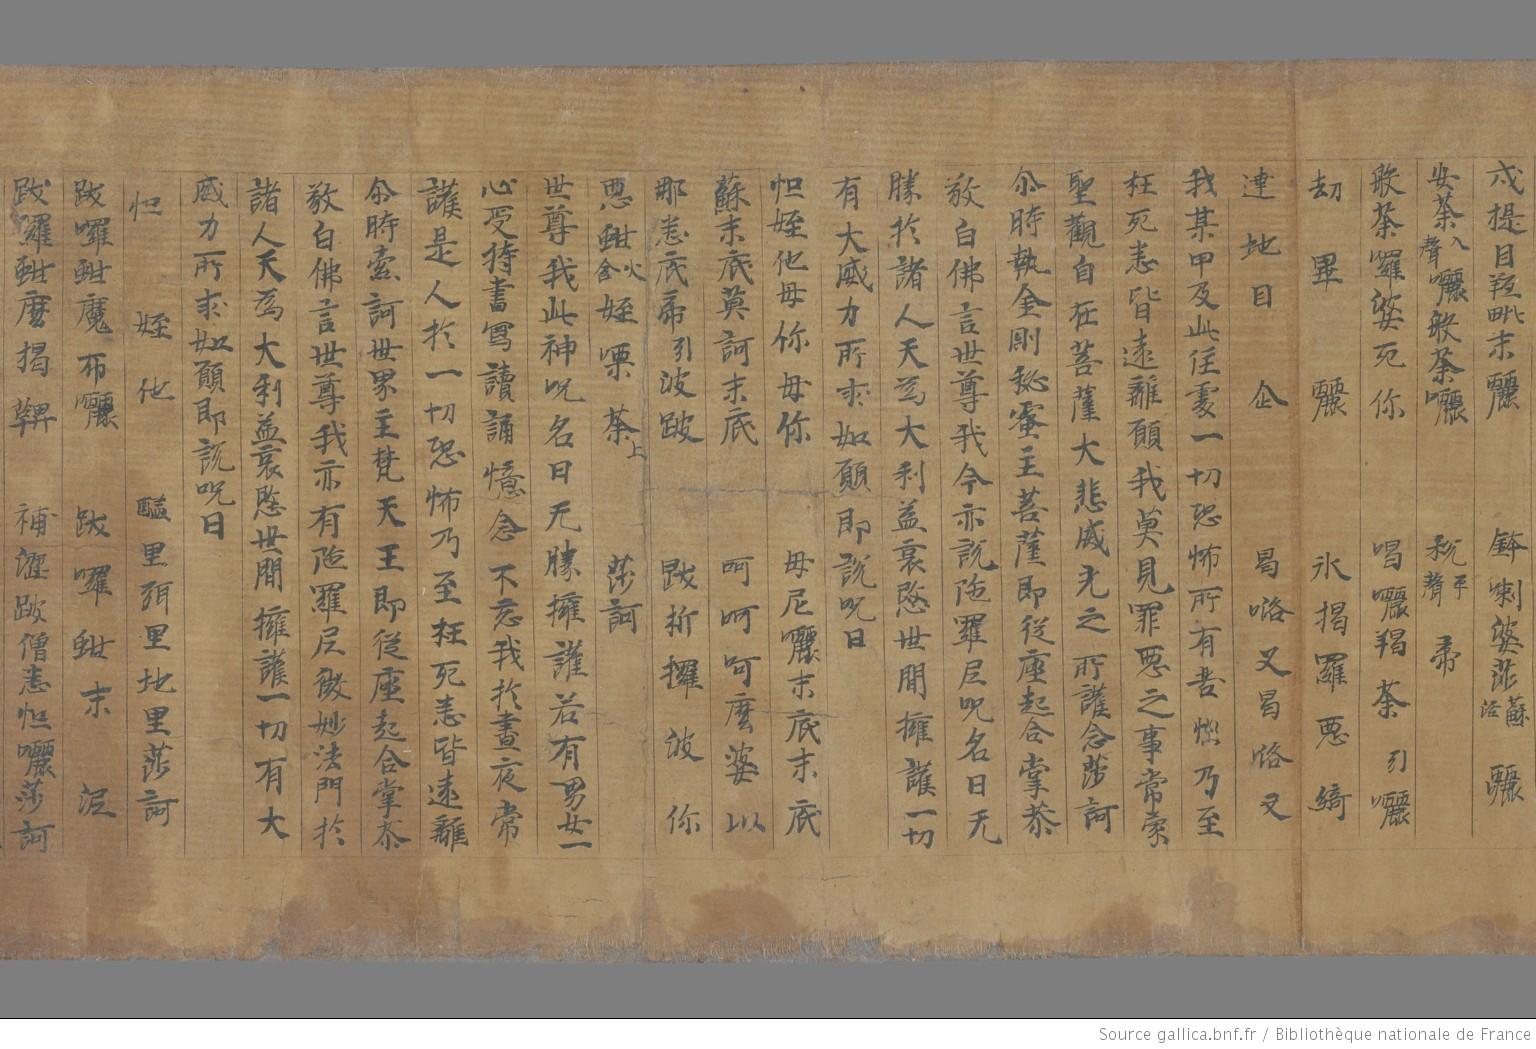 六提目羝毗末㘑 鉢喇婆莎蘇活 㘑
安荼入聲㘑般荼㘑 税平聲帝
般荼囉婆死你 唱㘑羯荼引㘑
劫畢㘑 氷揭羅惡綺
達地目企 曷咯叉曷咯叉
我某甲及此住處一切恐怖所有苦惱乃至
枉死悉皆遠離願我莫見罪惡之事常蒙
聖觀自在菩薩大悲威光之所護念莎訶
尒時執金剛秘密主菩薩即從座起合掌恭
敬白佛言世尊我今亦說陁羅尼呪名曰无
勝於諸人天為大利益哀愍世間擁護一切
有大威力所求如願即說呪曰
怛姪他毋你毋你 毋尼㘑末底末底
蘇末底莫訶末底 呵呵呵麼婆以
那悉底帝引波跛 跋折攞波你
惡鉗火含姪㗚荼上 莎訶
世尊我此神呪名曰无勝擁護若有男女一
心受持書寫讀誦憶念不忘我於晝夜常
護是人於一切恐怖乃至枉死悉皆遠離
尒時索訶世界主梵天王即從座起合掌恭
敬白佛言世尊我亦有陁羅尼微妙法門於
諸人天為大利益哀愍世間擁護一切有大
威力所求如願即說呪曰
怛姪他 醯里弭里地里莎訶
跋囉鉗魔布㘑 跋囉鉗末泥
跋囉鉗麼揭鞞 補澀跛僧悉怛㘑莎訶
Source gallica.bnf.fr / Bibliothèque nationale de France